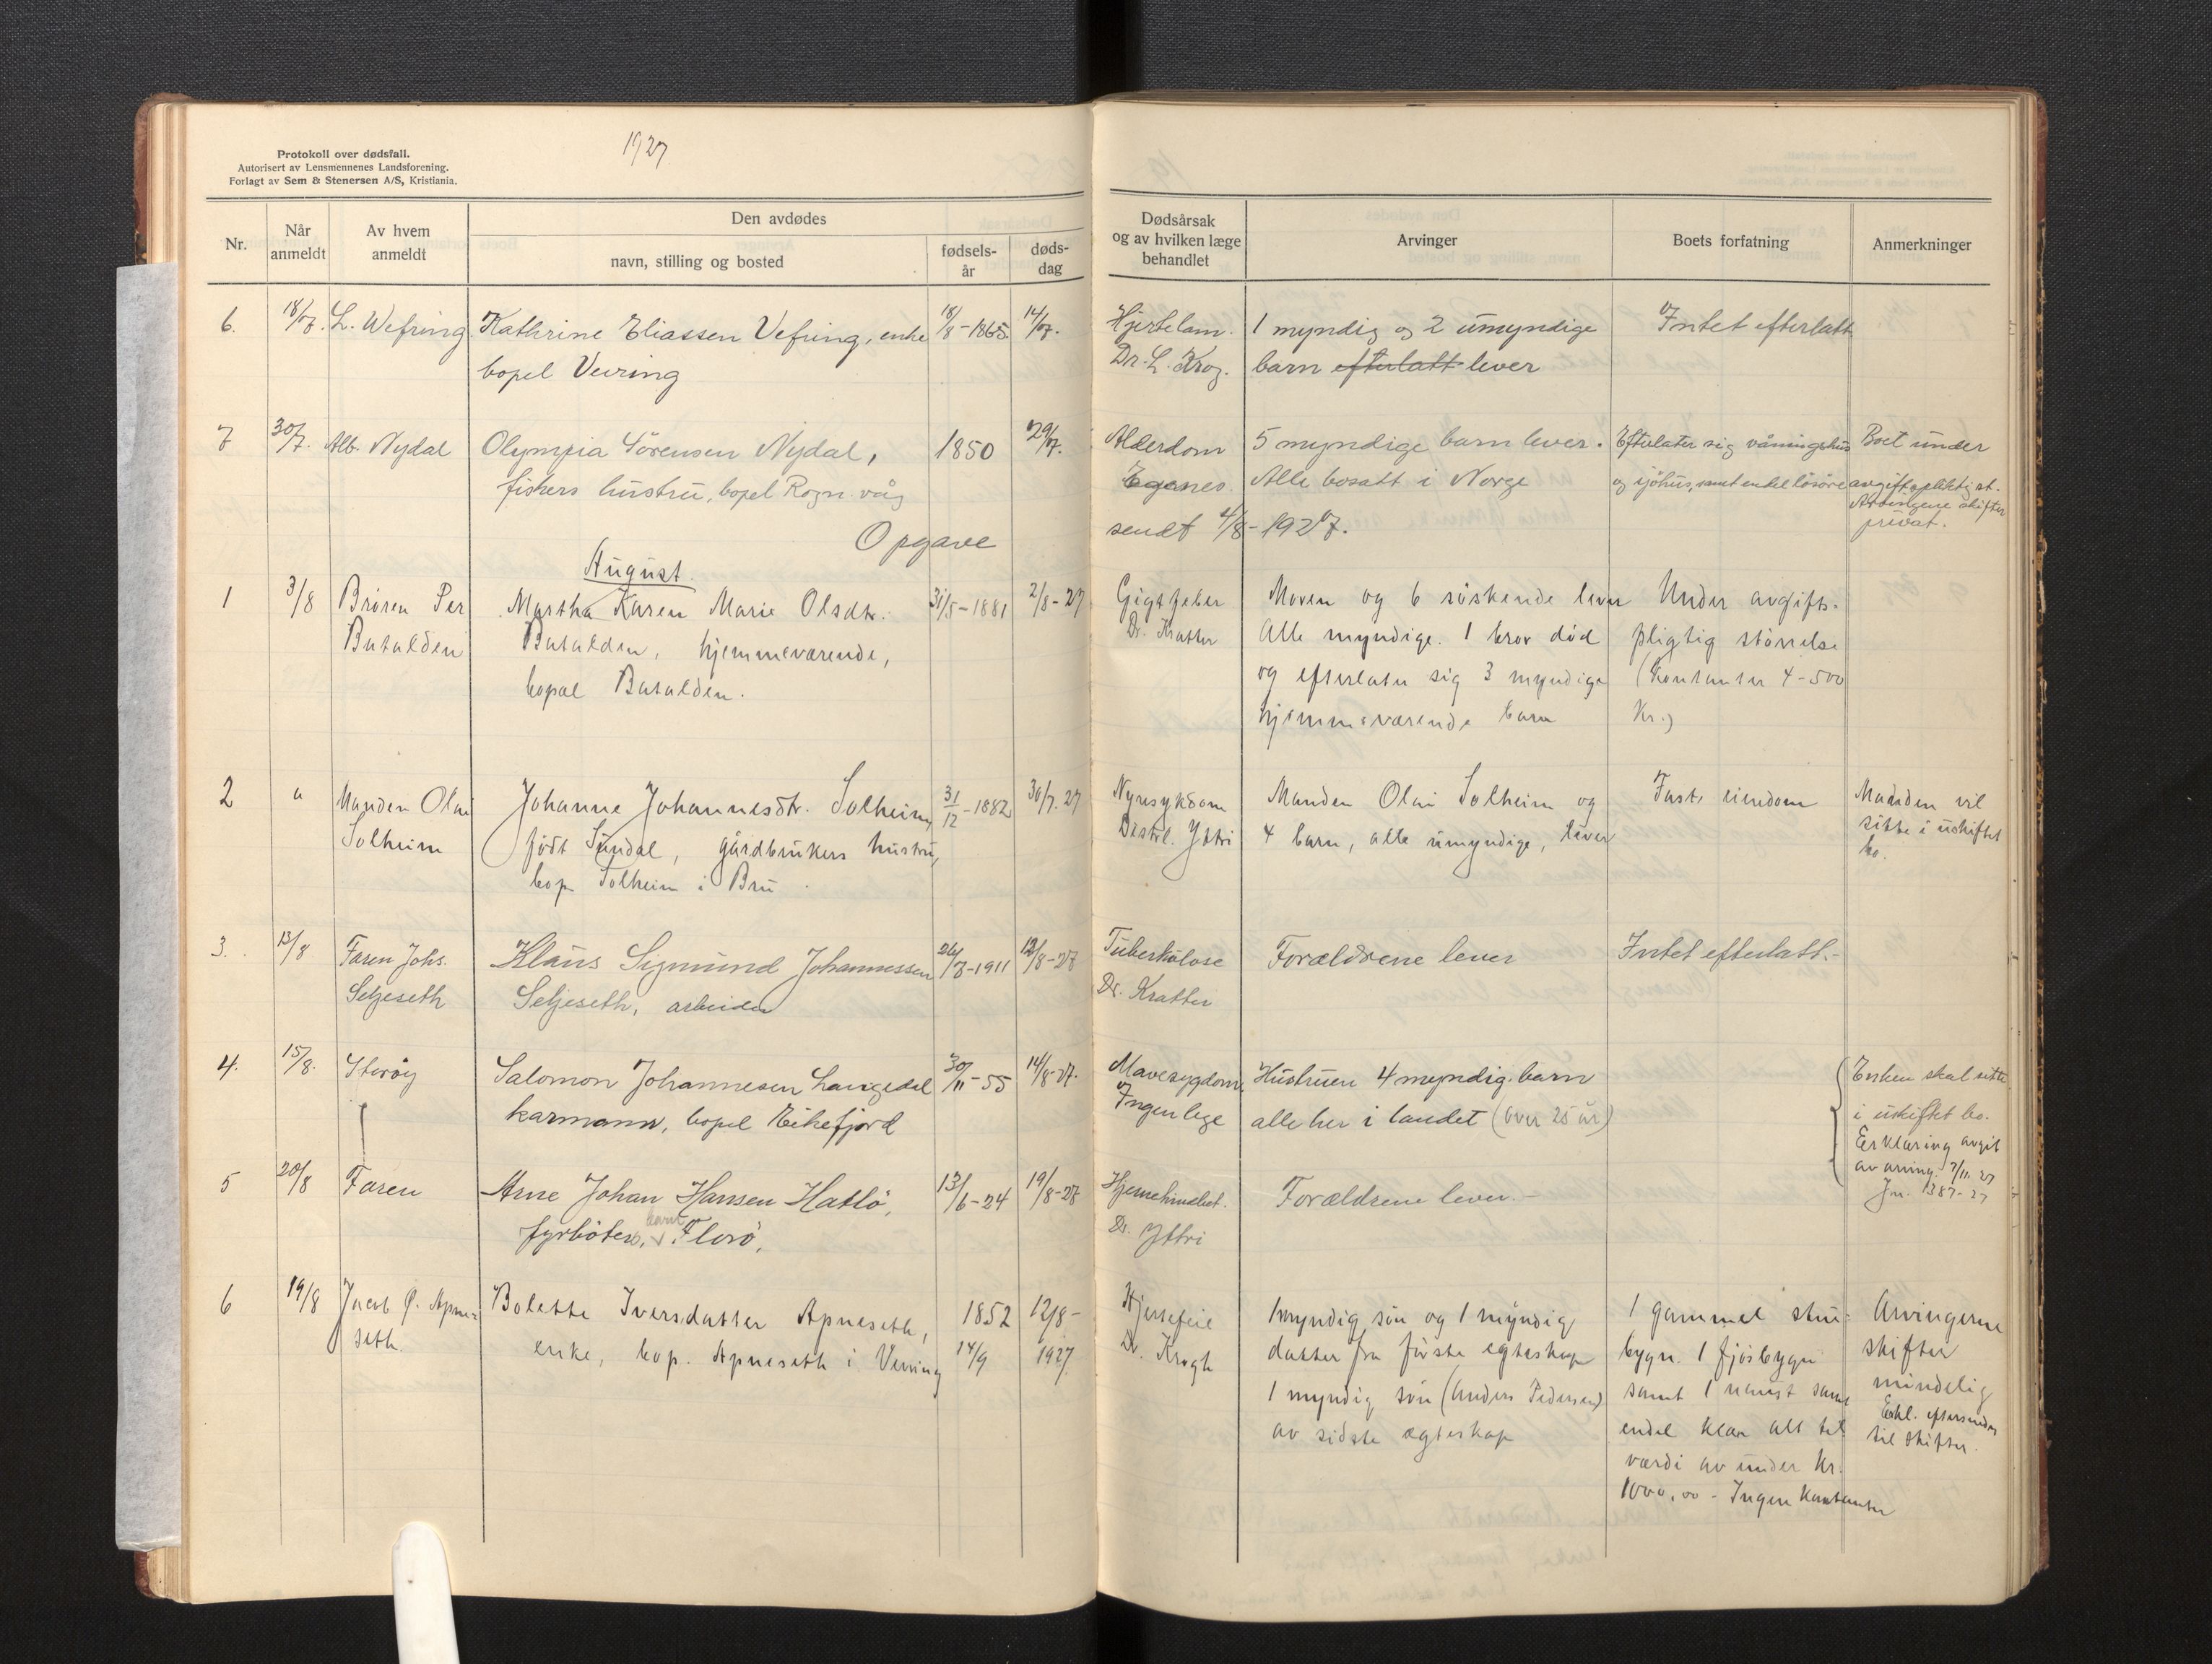 1927
Protokoll over dødsfall.
Autorisert av Lensmennenes Landsforening.
Forlagt av Sem & Stenersen A/S, Kristiania.
Nr.
Når anmeldt
Av hvem anmeldt
Den avdødes
navn, stilling og bosted
fødsels-år
døds-dag
Dødsårsak og av hvilken læge behandlet
Arvinger
Boets forfatning
Anmerkninger
6. 18/7. L. Wefring Kathrine Eliassen Vefring, enke 18/8-1865. 14/7. Hjertelam. 1 myndig og 2 umyndige Intet efterlatt
bopel Vevring Dr. L. Krog. barn efterlatt lever
7 30/7. Alb. Nydal Olympia Sörensen Nydal, 1850 29/7. Alderdom 5 myndige barn lever. Efterlater sig våningshus Boet under
fiskers hustru, bopel Rogn.våg Egenes. Alle bosatt i Norge og sjöhus, samt endel lösöre avgiftspliktig st.
Arvingene skifter
privat.
Opgave sendt 4/8-1927.
August.
1 3/8 Broren Per Martha Karen Marie Olsdtr. 31/5-1881 2/8-27 Gigtfeber Moren og 6 söskende lever Under avgifts-
Batalden Batalden, hjemmeværende, Dr. Kratter Alle myndige. 1 bror död pligtig störrelse
bopæl Batalden. og efterlater sig 3 myndige (Kontanter 4-500
hjemmeværende barn Kr.)
2 " Manden Olai Johanne Johannesdtr. Solheim, 31/12-1882 30/7.27 Nyresykdom Manden Olai Solheim og Fast eiendom Manden vil
Solheim født Sundal, gårdbrukers hustru, Distrl. Yttri 4 barn, alle umyndige, lever sitte i uskiftet
bop. Solheim i Bru bo.
3. 13/8 Faren Johs. Klaus Sigmund Johannessen 26/7-1911 12/8-27 Tuberkulose Forældrene lever Intet efterlatt.-
Seljeseth Seljeseth, arbeider Dr. Kratter
4. 15/8. Storöy Salomon Johannesen Langedal 30/11-55 14/8-27. Mavesygdom. Hustruen 4 myndig. barn Enken skal sitte
karmann, bopel Eikefjord Ingen lege alle her i landet (over 25 år) i uskiftet bo.
Erklæring avgit
av arving. 7/11.27
Jnr. 1387-27
5 20/8 Faren Arne Johan Hansen Hatlö, 13/6-24 19/8-27 Hjernehindebet. Forældrene lever.-
fyrböters barn, Florö, Dr. Yttri
6 19/8 Jacob P. Apne- Bolette Iversdatter Apneseth, 1852 12/8- Hjertefeil 1 myndig sön og 1 myndig 1 gammel stu- Arvingerne
seth. enke, bop. Apneseth i Vevring 14/9 1927 Dr. Krogh datter fra første egteskap bygn. 1 fjösbygn skifter
1 myndig sön (Anders Pedersen) samt 1 naust samt mindelig
av sidste ægteskap endel klær alt til Erkl. eftersendes
værdi av under Kr. til skifter.
1000,00 - Ingen kontanter